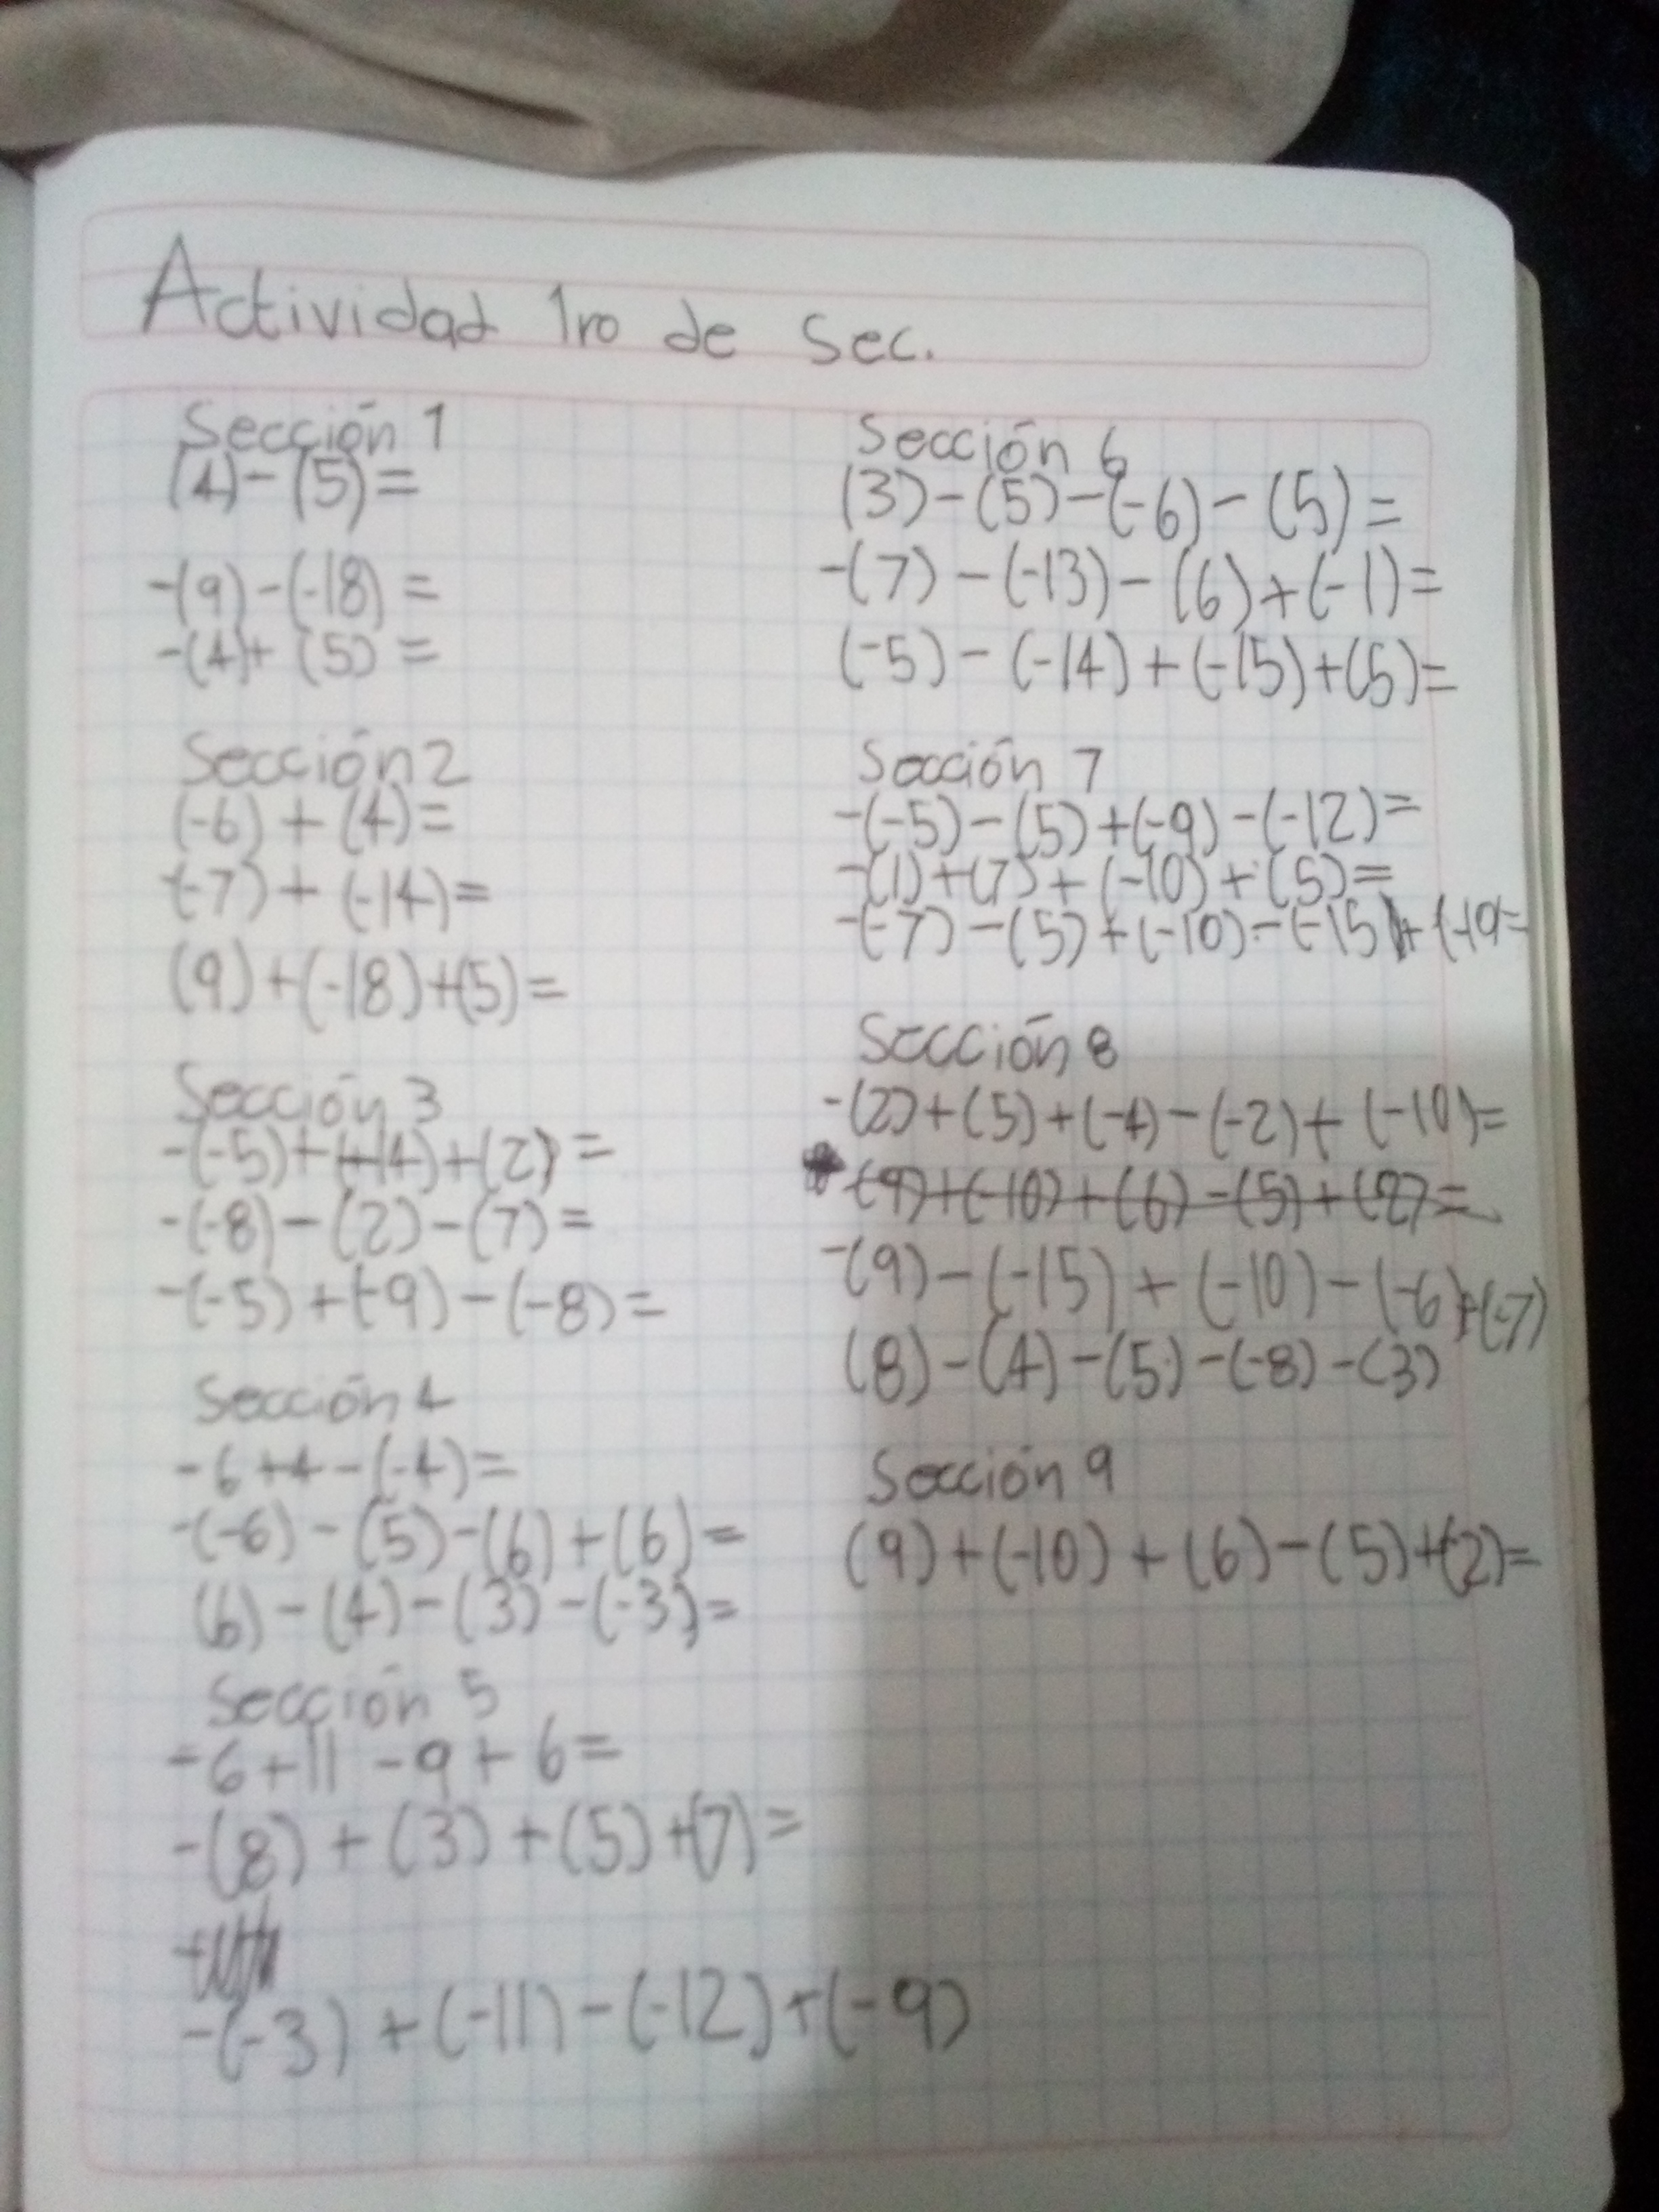 Actividad 1ro de Sec.
Sección 1
(4)-(5)=
-(9)-(-18)=
-(4)+(5)=
Sección 2
(-6)+(4)=
(-7)+(-14)=
(9)+(-18)+(5)=
Sección 3
-(-5)+(-14)+(2)=
-(-8)-(2)-(7)=
-(-5)+(-9)-(-8)=
Sección 4
-6+4-(-4)=
-(-6)-(5)-(6)+(6)=
(6)-(4)-(3)-(-3)=
Sección 5
-6+11-9+6=
-(8)+(3)+(5)+(7)=
-(-3)+(-11)-(-12)+(-9)
Sección 6
(3)-(5)-(-6)-(5)=
-(7)-(-13)-(6)+(-1)=
(-5)-(-14)+(-15)+(5)=
Sección 7
-(-5)-(5)+(-9)-(-12)=
-(1)+(7)+(-10)+(5)=
-(-7)-(5)+(-10)-(-15)+(-10=
Sección 8
-(2)+(5)+(-4)-(-2)+(-10)=
(9)+(-10)+(6)-(5)+(-2)=
-(9)-(-15)+(-10)-(-6)+(-7)
(8)-(4)-(5)-(-8)-(3)
Sección 9
(9)+(-10)+(6)-(5)+(-2)=